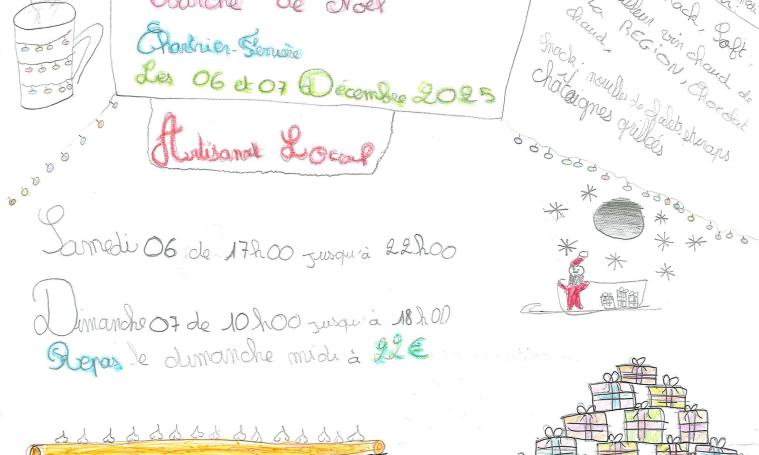 Marché de Noël
Chartrier-Ferrière
Les 06 et 07 Décembre 2025
Artisanat Local
Snack, Soft,
vin chaud de
LA REGION, Chocolat
chaud,
Snack: nouilles
châtaignes grillées
Samedi 06 de 17h00 jusqu'à 22h00
Dimanche 07 de 10h00 jusqu'à 18h00
Repas le dimanche midi à 22€